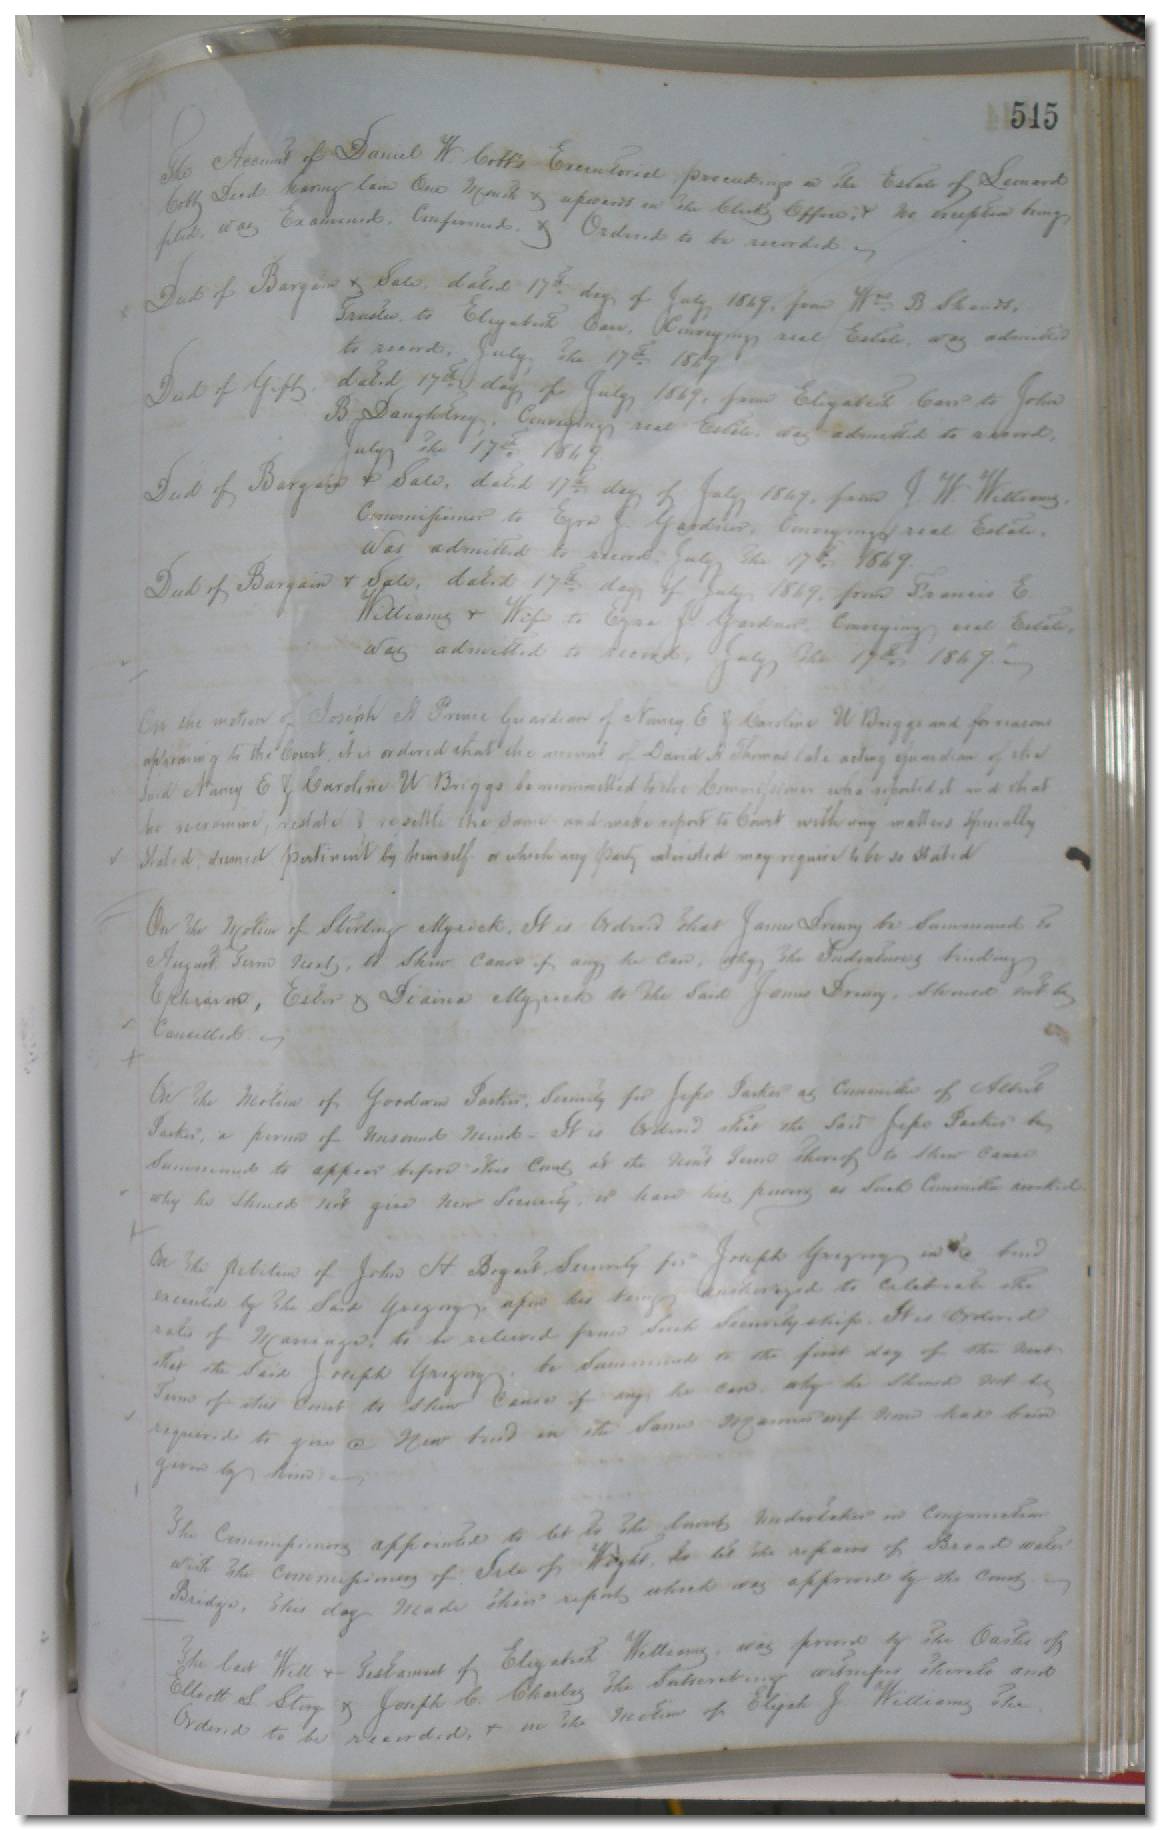 515
The Account of Daniel W Cobb's Executorial proceedings on the Estate of Leonard
Cobb Decd having lain One Month & upwards in the Clerks Office, & no exception being
filed, was Examined, Confirmed, & Ordered to be recorded
Deed of Bargain & Sale, dated 17th day of July 1869, from Wm B Shands,
Trustee, to Elizabeth Carr, Conveying real Estate, was admitted
to record, July, the 17th 1869
Deed of Gift, dated 17th day of July 1869, from Elizabeth Carr to John
B Daughtrey, Conveying real Estate, was admitted to record,
July the 17th 1869
Deed of Bargain & Sale, dated 17th day of July 1869, from J. W. Williams,
Commissioner to Ezra J. Gardner, Conveying real Estate,
was admitted to record, July the 17th 1869.
Deed of Bargain & Sale, dated 17th day of July 1869, from Francis E.
Williams & Wife to Ezra J. Gardner, Conveying real Estate,
was admitted to record, July the 17th 1869.
On the motion of Joseph H Prince Guardian of Nancy E & Caroline W Briggs and for reasons
appearing to the Court, it is ordered that the account of David A Thomas late acting guardian of the
said Nancy E & Caroline W Briggs be recommitted to the Commissioner who reported it and that
he reexamine, restate & resettle the same and make report to Court with any matters specially
stated, deemed pertinent by himself or which any party interested may require to be so stated
On the Motion of Sterling Myrick, It is Ordered that James Drewry be Summoned to
August Term Next, to Shew Cause if any he can, why the Indentures binding
Ephraim, Ester & Diana Myrick to the Said James Drewry, Should not be
Cancelled
On the Motion of Goodwin Parker, Security for Jesse Parker as Committee of Albert
Parker, a person of unsound Mind - It is Ordered that the Said Jesse Parker be
Summoned to appear before this Court at the Next Term thereof to Shew Cause
why he Should not give New Security, or have his powers as Such Committee revoked
On the petition of John H Bogart, Security for Joseph Gregory in bond
executed by the Said Gregory, upon his being authorized to celebrate the
rites of Marriage, to be relieved from Such Securityship. It is Ordered
that the Said Joseph Gregory, be Summoned to the first day of the Next
Term of this Court to Shew Cause if any he can, why he Should not be
required to give a New bond in the Same Manner as if None had been
given by him
The Commissioners appointed to let to the lowest undertaker in conjunction
with the Commissioners of Isle of Wight, to let the repairs of Broad water
Bridge, this day made their report, which was approved by the Court
The last Will & Testament of Elizabeth Williams, was proved by the Oaths of
Elliott L Story & Joseph C. Charles the Subscribing witnesses thereto and
Ordered to be recorded, & on the Motion of Elijah J Williams the